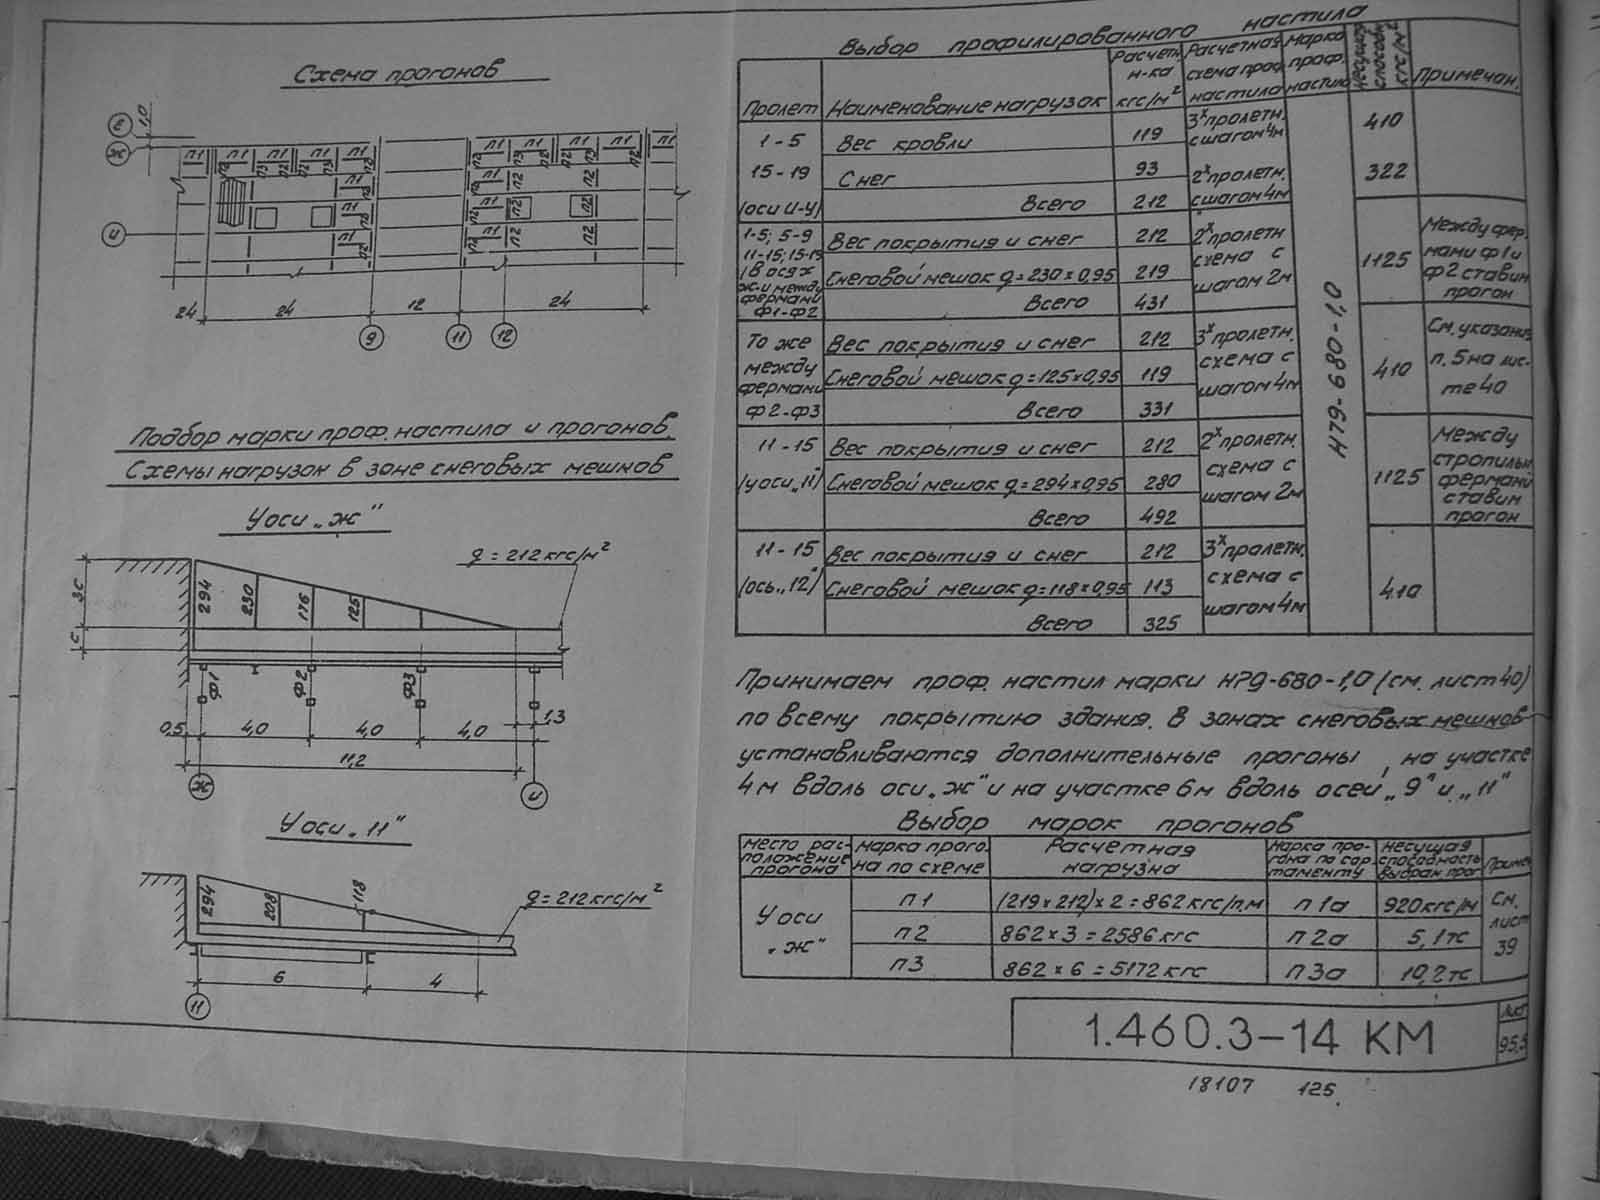 Схема прогонов
Е
Ж
И
1,0
П1 П1 П1 П1 П1 П1 П1 П1 П1
П2 П3 П2 П2 П3 П2
П1
П1
П1
П2
24 24 12 24
9 11 12
Подбор марки проф. настила и прогонов.
Схемы нагрузок в зоне снеговых мешков
У оси „Ж"
g = 212 кгс/м²
3с
с
294 230 176 125
Ф1 Ф2 Ф3
0,5 4,0 4,0 4,0 1,3
11,2
Ж И
У оси „11"
294 208 118
g = 212 кгс/м²
6 4
11
Выбор профилированного настила
Пролет
Наименование нагрузок
Расчетн. н-ка кгс/м²
Расчетная схема проф. настила
Марка проф. настила
Несущая способн. кгс/м²
Примечан.
1-5
15-19
/оси И-У/
Вес кровли 119
Снег 93
Всего 212
3х пролетн. с шагом 4м 410
2х пролетн. с шагом 4м 322
1-5; 5-9
11-15; 15-19
/в осях
Ж-И между
фермами
Ф1-Ф2
Вес покрытия и снег 212
Снеговой мешок g = 230 х 0,95 219
Всего 431
2х пролетн схема с шагом 2м
1125
Между фер-
мами Ф1 и
Ф2 ставим
прогон
То же
между
фермами
Ф2-Ф3
Вес покрытия и снег 212
Снеговой мешок g = 125 х 0,95 119
Всего 331
3х пролетн. схема с шагом 4м
410
См. указания
п. 5 на лис-
те 40
11-15
/у оси „11"/
Вес покрытия и снег 212
Снеговой мешок g = 294 х 0,95 280
Всего 492
2х пролетн. схема с шагом 2м
1125
Между
стропильн
фермами
ставим
прогон
11-15
/ось „12"/
Вес покрытия и снег 212
Снеговой мешок g = 118 х 0,95 113
Всего 325
3х пролетн. схема с шагом 4м
410
Н79-680-1,0
Принимаем проф. настил марки Н79-680-1,0 (см. лист 40)
по всему покрытию здания. В зонах снеговых мешков
устанавливаются дополнительные прогоны, на участке
4м вдоль оси „Ж" и на участке 6м вдоль осей „9" и „11"
Выбор марок прогонов
Место рас-
положение
прогона
Марка прого-
на по схеме
Расчетная
нагрузка
Марка про-
гона по сор-
таменту
Несущая
способность
выбран. прог
Примеч
У оси
„Ж"
П1 (219 х 212) х 2 = 862 кгс/п.м П1а 920 кгс/м
П2 862 х 3 = 2586 кгс П2а 5,1 тс
П3 862 х 6 = 5172 кгс П3а 10,2 тс
См.
лист
39
1.460.3-14 КМ
Лист
95,5
18107 125